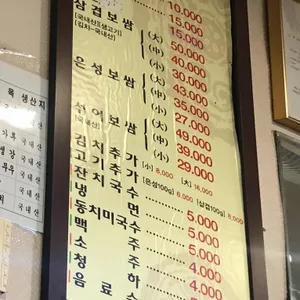 10.000
15.000
삼겹보쌈 (大) 15.000
[국내산돼지생고기] (中) 50.000
[김치-국내산] (小) 40.000
은성보쌈 (大) 30.000
(中) 43.000
(小) 35.000
섞어보쌈 (大) 27.000
[국내산] (中) 49.000
(小) 39.000
김치추가 (小) 8,000 (大) 16,000 29.000
고기추가 [은성100g] 6,000 [삼겹100g] 8,000
잔치국수 5.000
냉면 5.000
동치미국수 5.000
맥주 4.000
소주 4.000
청하
음료수
육 생산지
국내산
국내산
국내산
국내산